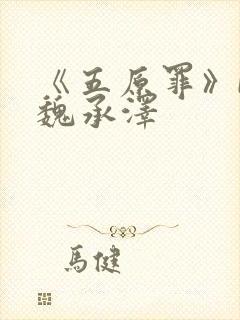 《五原罪》
魏承澤
馬健